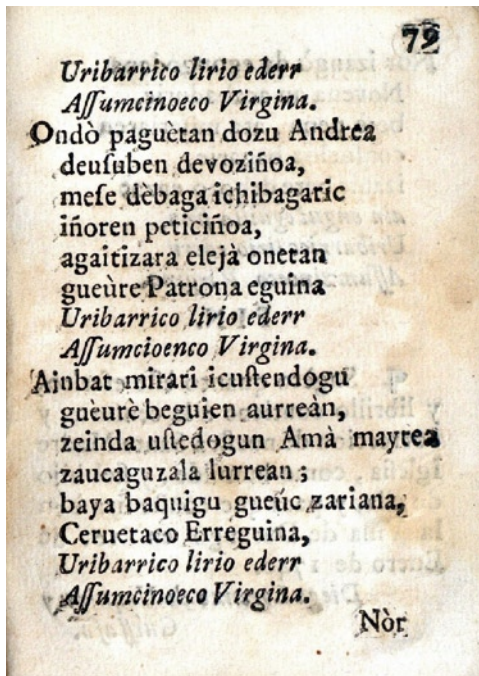 79
Uribarrico lirio ederr
Aſſumcinoeco Virgina.
Ondò paguètan dozu Andrea
deuſuben devoziñoa,
meſe debaga ichibagaric
iñoren peticiñoa,
agaitizara elejà onetan
gueùre Patrona eguina
Uribarrico lirio ederr
Aſſumcioenco Virgina.
Ainbat mirari icuſtendogu
guèurè beguien aurreàn,
zeinda uſtedogun Amà maytea
zaucaguzala lurrean;
baya baquigu gueùc zariana,
Ceruetaco Erreguina,
Uribarrico lirio ederr
Aſſumcinoeco Virgina.
Nòr